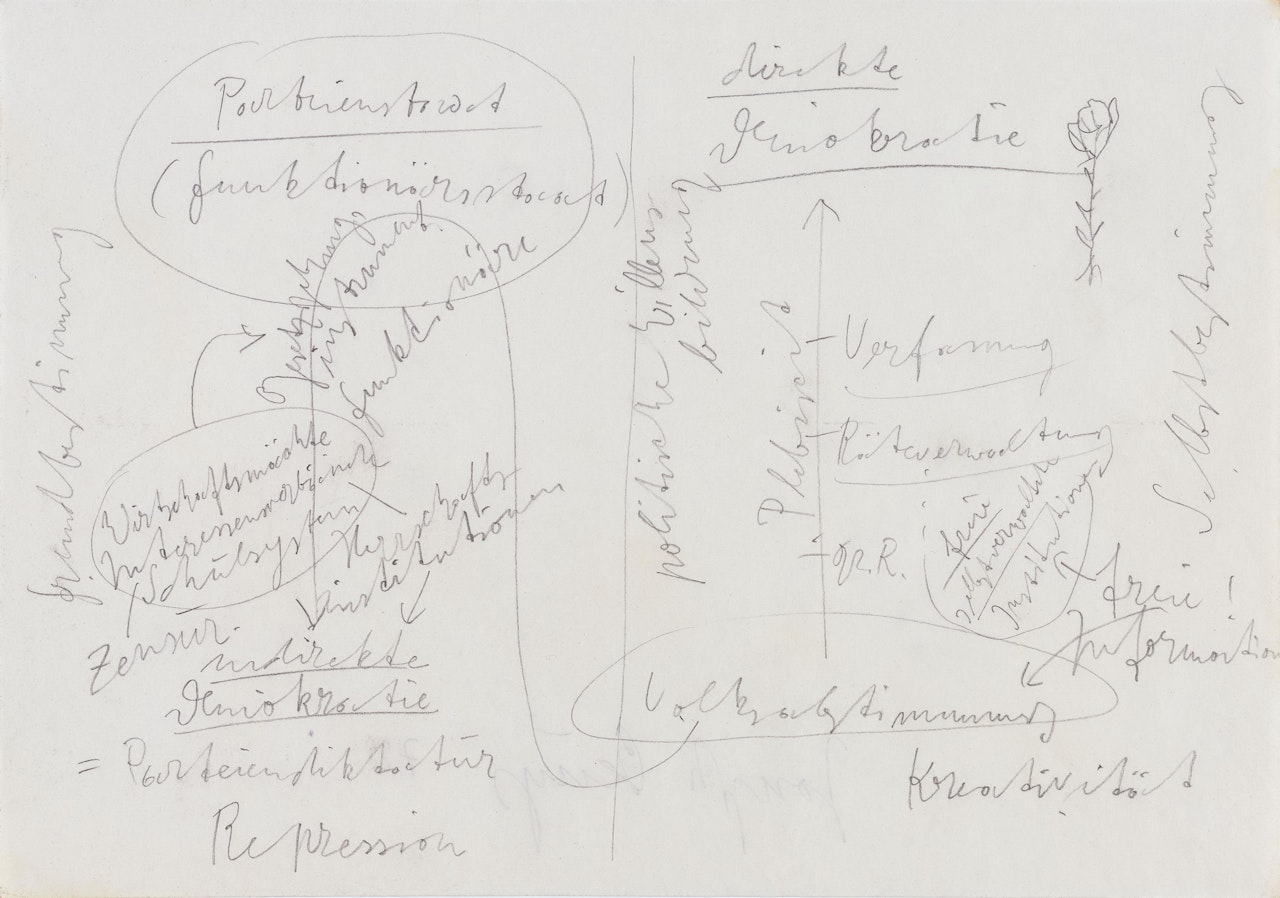 Parteienstaat
(Funktionärsstaat)
Fremdbestimmung
Gesetzgebungs
instrument.
Funktionäre
Wirtschaftsmächte
Interessensverbände
Schulsystem
Herrschafts
institutionen
Zensur.
indirekte
Demokratie
= Parteiendiktatur
Repression
politische Willens
bildung
direkte
Demokratie
Plebiszit
Verfassung
Räteverwaltung
Gr. R.
freie
selbstverwaltete
Institutionen
Selbstbestimmung
freie !
Information
Volksabstimmung
Kreativität